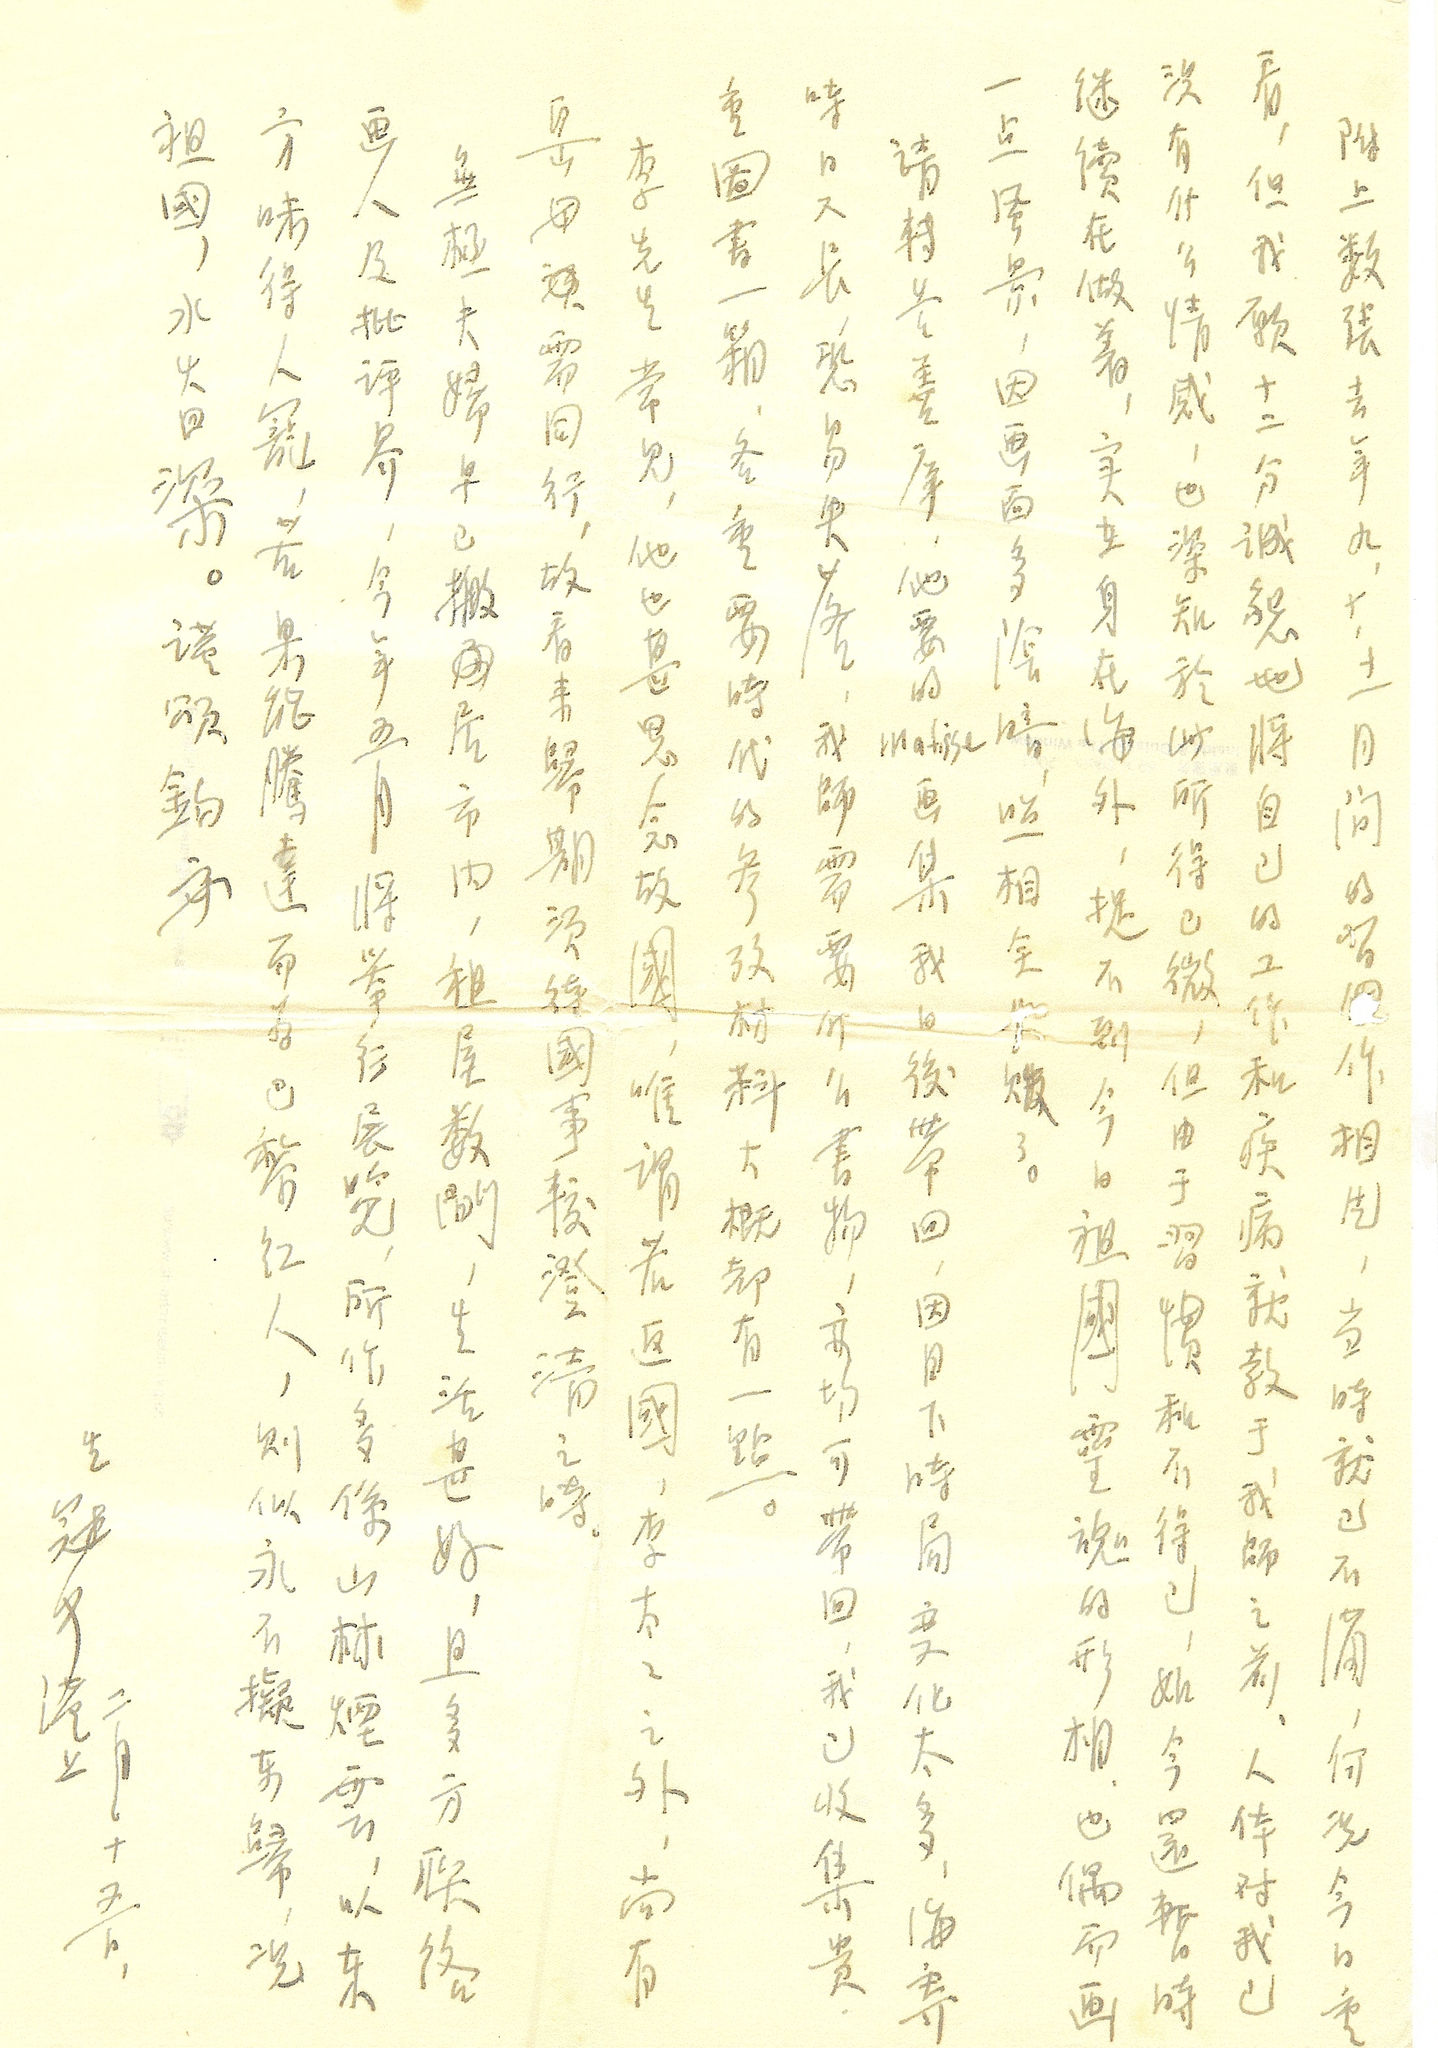 附上數張去年九、十、十一月間的習作相片，当時就已不滿，何况今日重
看，但我願十二分誠懇地將自己的工作和疾病就教于我師之前、人体对我已
没有什么情感，也深知於此所得已微，但由于習慣和不得已，如今還暫時
继續在做着，实在身在海外，捉不到今日祖國靈魂的形相、也偶而画
一点風景，因画面多陰暗，照相全
請轉告善庠，他要的 Matisse 画集我日後帶回，因目下時局变化太多，海寄
時日又長，恐易失落，我師需要什么書物，亦均可帶回，我已收集貴
重圖書一箱，各重要時代的參攷材料大概都有一點。
李先生常見，他也甚思念故國，唯謂若返國，李太太之外，尚有
岳母須需同行，故看来歸期須待國事較澄清之時。
無極夫婦早已搬囬居市内，租屋数間，生活甚好，且多方联络
画人及批評界，今年五月將举行展览，所作多像山林煙雲，以东
方味得人寵，若果能騰達而為巴黎红人，則似永不擬东歸，况
祖國，水火日深。謹頌鈞安
生 冠中 谨上
二月十五日，